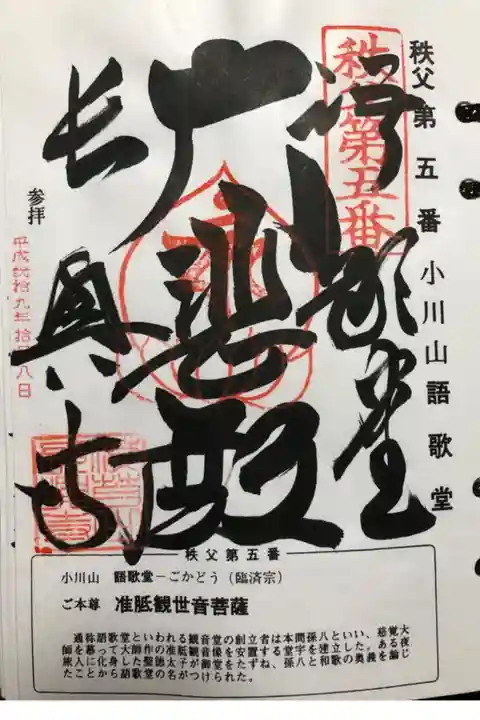 秩父第五番 小川山語歌堂
秩父第五番
語歌堂
大悲殿
長興寺
参拝
平成弐拾九年拾月八日
秩父第五番
小川山 語歌堂－ごかどう（臨済宗）
ご本尊 准胝観世音菩薩
通称語歌堂といわれる観音堂の創立者は本間孫八といい、慈覚大
師を慕って大師作の准胝観音像を安置する堂宇を建立した。ある夜
旅人に化身した聖徳太子が御堂をたずね、孫八と和歌の奥義を論じ
たことから語歌堂の名がつけられた。